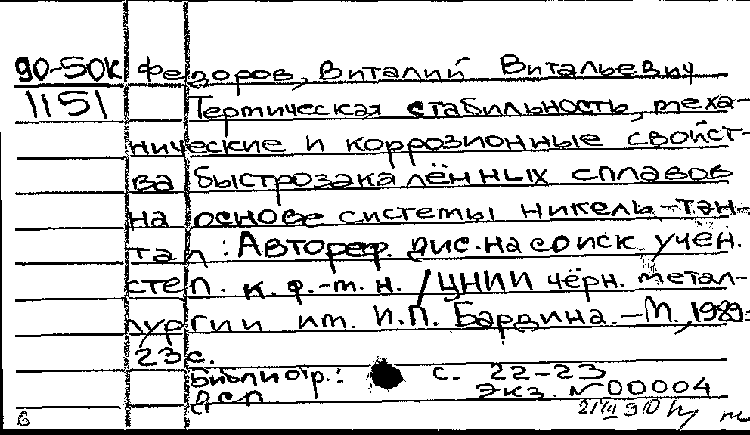 90-50к Федоров, Виталий Витальевич
1151 Термическая стабильность, меха-
нические и коррозионные свойст-
ва быстрозакалённых сплавов
на основе системы никель-тан-
тал : Автореф. дис. на соиск. учен.
степ. к. ф.-м. н. / ЦНИИ чёрн. метал-
лургии им. И.П. Бардина. - М., 1989.-
23 с.
Библиогр.: с. 22-23
ДСП Экз. N 00004
в